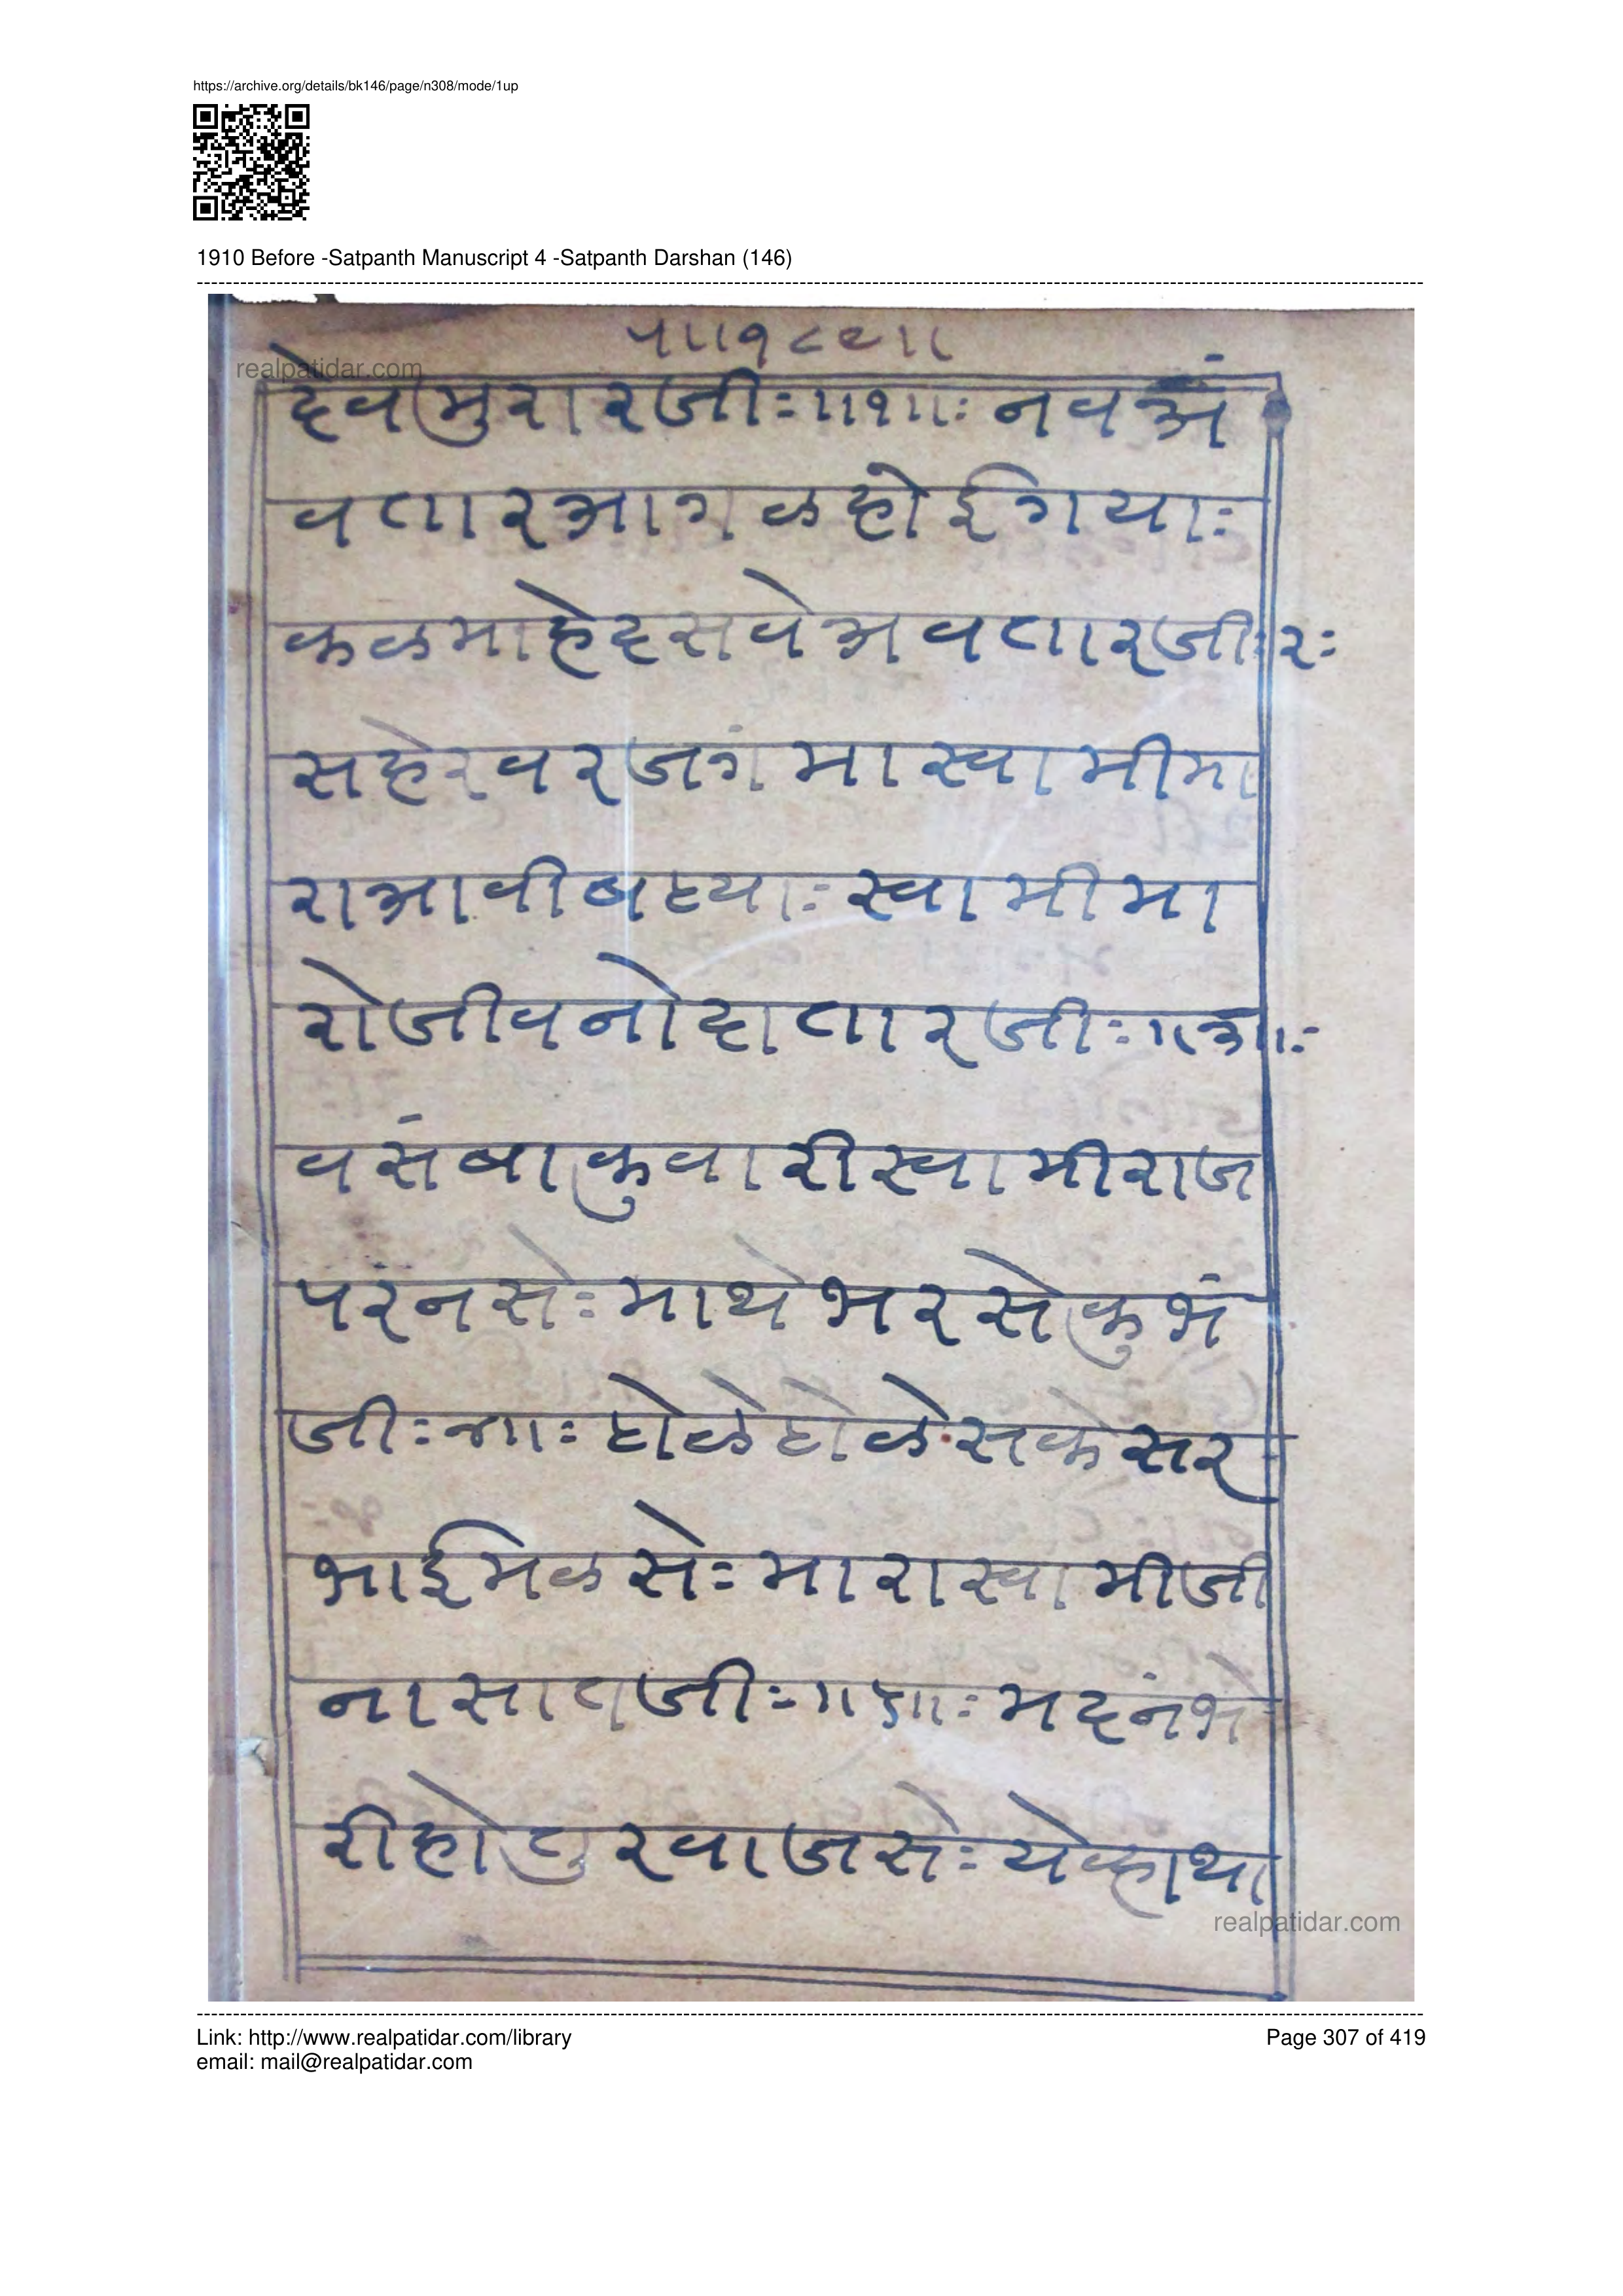 https://archive.org/details/bk146/page/n308/mode/1up
1910 Before -Satpanth Manuscript 4 -Satpanth Darshan (146)
realpatidar.com
प॥१८९॥
देवमुरारजीः॥१॥ः नवअं
वतारआगळहोईगयाः
कळमाहेदसवेअवतारजीः२ः
सहेरवरजगंमास्वामीमा
राआवीबध्याः स्वामीमा
रोजीवनोदातारजीः॥३॥ः
वसंबाकुवारीस्वामीराज
परंनसेः माथेभरसेकुभं
जीः४॥ः ढोळेढोळे सकेसर
भाईमिळसेः मारास्वामीजी
नासातजीः॥५॥ः मदनंभे
रीहोतुरवाजसेः येव्हाथा
realpatidar.com
Link: http://www.realpatidar.com/library
Page 307 of 419
email: mail@realpatidar.com